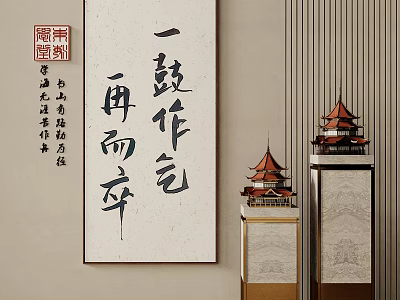 一鼓作气
再而卒
书山有路勤为径
学海无涯苦作舟